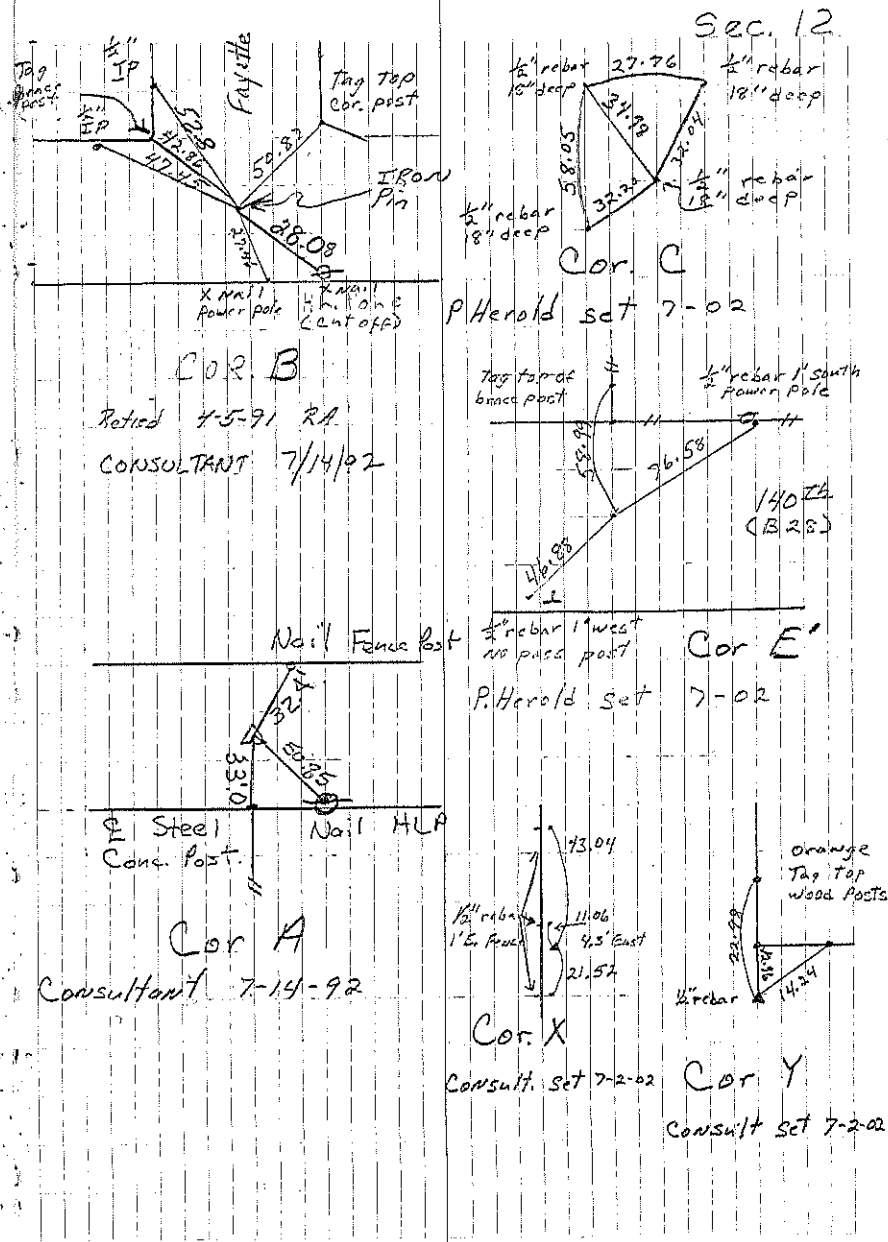 Sec. 12
Tag
corner
post
1/4"
IP
1/4" IP
Fayette
Tag Top
Cor. post
52.8
42.86
47.45
50.87
IRON
Pin
28.08
X Nail
Power pole
X Nail
(cut off)
COR. B
Retied 4-5-91 RA
CONSULTANT 7/14/92
Nail Fence Post
32.4
50.85
33.0
℄ Steel
Conc. Post.
Nail HLP
Cor A
Consultant 7-14-92
1/2" rebar
18" deep
27.76
1/2" rebar
18" deep
34.98
32.04
58.05
32.22
1/2" rebar
18" deep
1/2" rebar
18" deep
Cor. C
P Herold set 7-02
Tag top of
brace post
1/2" rebar 1' south
Power Pole
58.99
96.58
140th
(B 28)
46.88
1/2" rebar 1' west
No pass post
Cor E'
P. Herold set 7-02
43.04
1/2" rebar
1' E. Fence
11.06
4.3' East
21.52
Cor. X
Consult. set 7-2-02
Orange
Tag Top
Wood Posts
22.98
14.24
1/2" rebar
Cor Y
Consult set 7-2-02